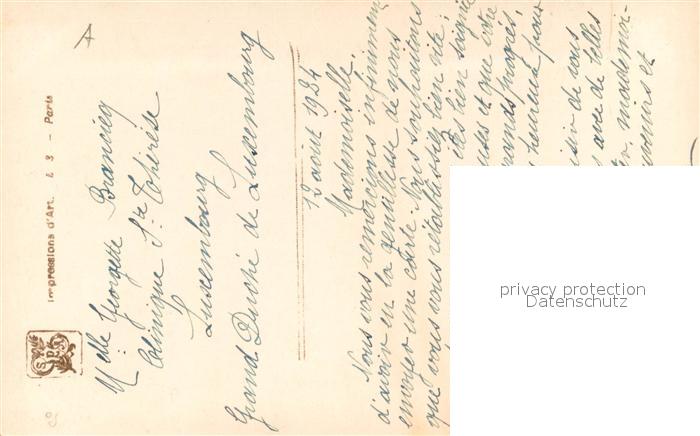 Impressions d'Art. L 3 - Paris
SPA
Melle Georgette
Clinique Ste Thérèse
Luxembourg
Grand Duché de Luxembourg
12 août 1924
Mademoiselle,
Nous vous remercions infiniment
d'avoir eu la gentillesse de nous
envoyer une carte. Nous souhaitons
que vous vous rétablissiez bien vite,
bien soignée
et que votre
grands progrès,
heureux pour
de vous
avec de telles
mademoi-
et
privacy protection
Datenschutz